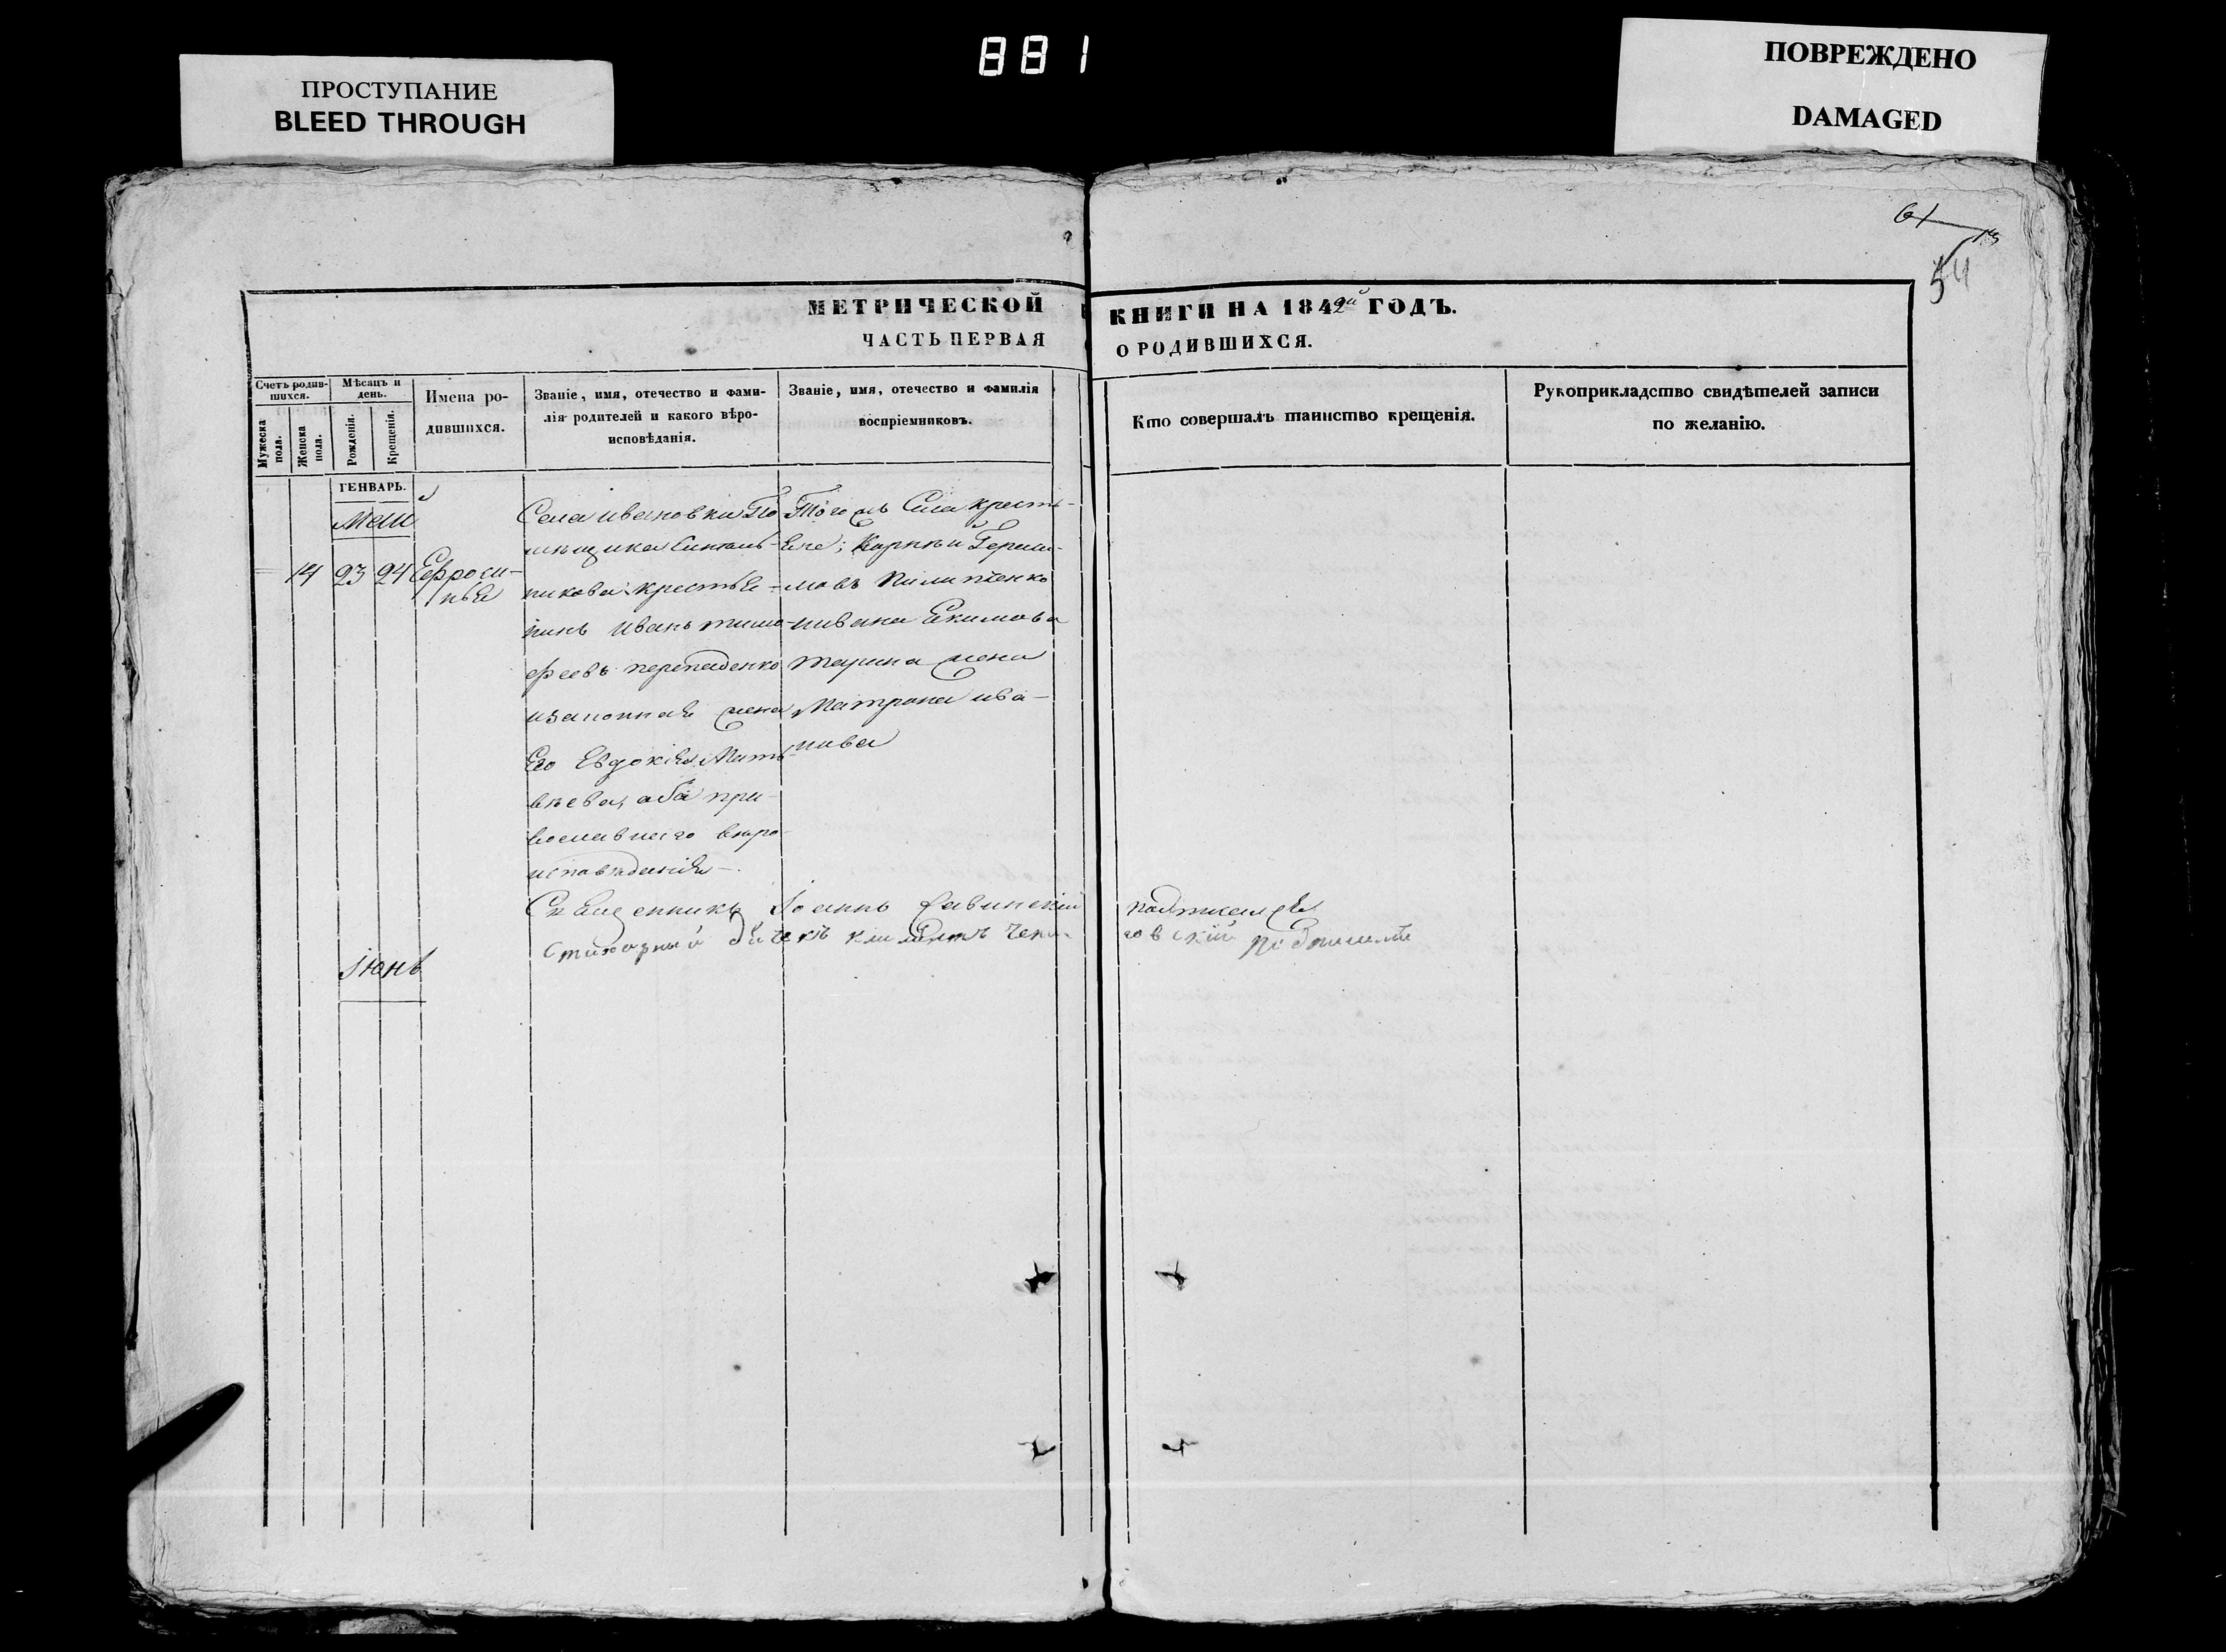 881
ПРОСТУПАНИЕ
BLEED THROUGH
ПОВРЕЖДЕНО
DAMAGED
61
54
МЕТРИЧЕСКОЙ КНИГИ НА 1842й ГОДЪ.
ЧАСТЬ ПЕРВАЯ О РОДИВШИХСЯ.
Счетъ родив-
шихся.
Мужеска
пола.
Женска
пола.
Мѣсяцъ и
день.
Рожденія.
Крещенія.
Имена ро-
дившихся.
Званіе, имя, отечество и фами-
лія родителей и какого вѣро-
исповѣданія.
Званіе, имя, отечество и фамилія
воспріемниковъ.
Кто совершалъ таинство крещенія.
Рукоприкладство свидѣтелей записи
по желанію.
ГЕНВАРЬ.
Маій
14 23 24 Ефроси-
нья
Села Ивановки По
мѣщика
никова крестья-
нинъ Иванъ Тимо-
феевъ
изаконная жена
Его Евдокія Мат-
вѣева, оба пра-
вославнаго вѣро
исповѣданія
Того жъ Села крестья-
не; Карпъ
мовъ Пилипенко
Екимова
жена
Матрона Ива-
нова
Священникъ Іоаннъ
Стихарный Дьячекъ Климентъ
Іюнь